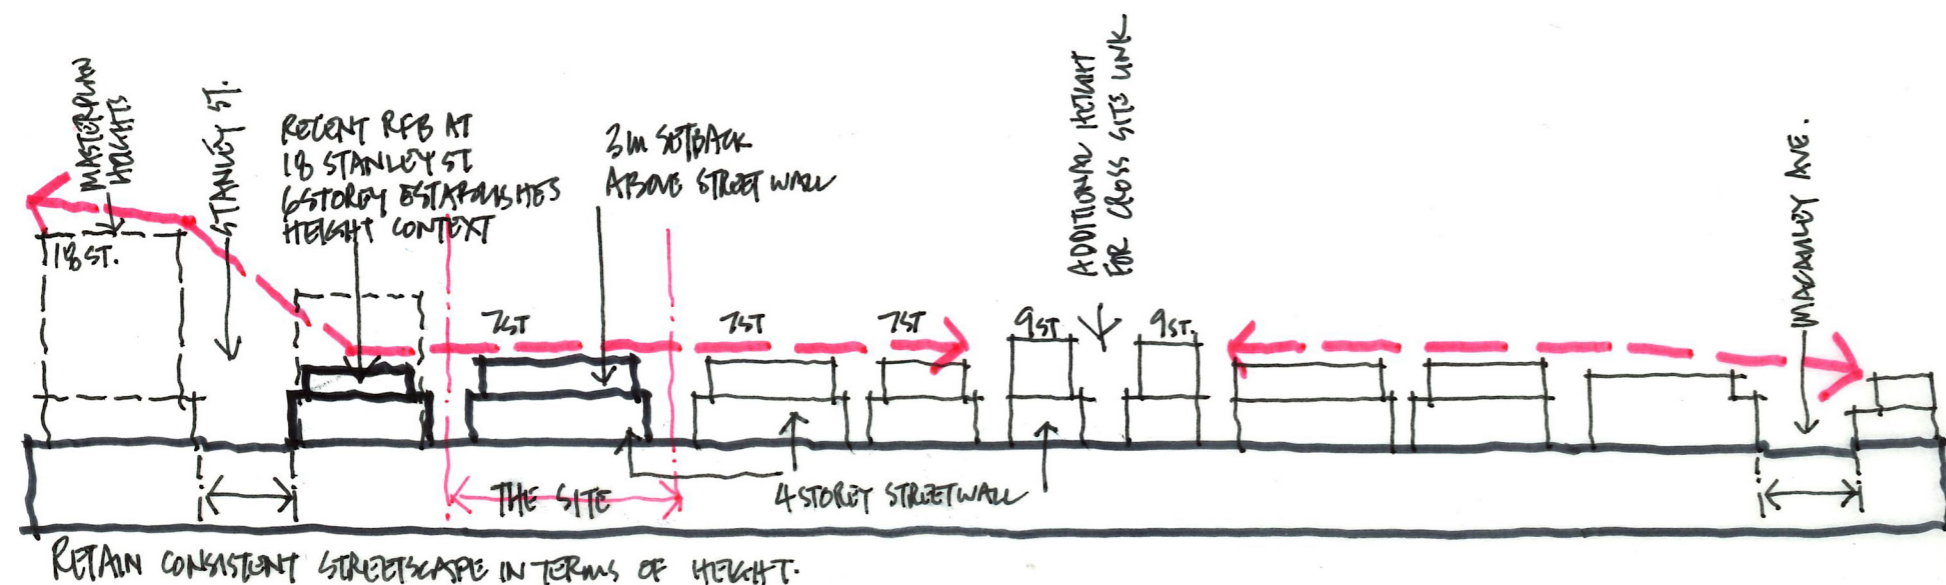 MASTERPLAN
HEIGHTS
STANLEY ST.
18 ST.
RECENT RFB AT
18 STANLEY ST
6 STOREY ESTABLISHES
HEIGHT CONTEXT
3m SETBACK
ABOVE STREET WALL
ADDITIONAL HEIGHT
FOR CROSS SITE LINK
MACAULEY AVE.
7ST
7ST
7ST
9ST
9ST.
THE SITE
4 STOREY STREETWALL
RETAIN CONSISTENT STREETSCAPE IN TERMS OF HEIGHT.